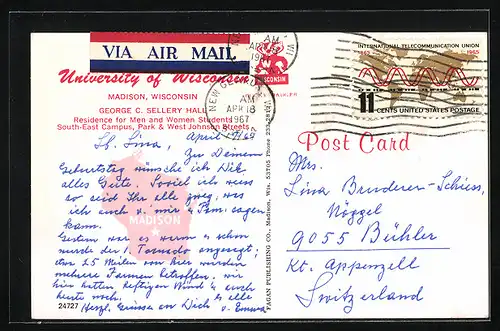 VIA AIR MAIL
University of Wisconsin
MADISON, WISCONSIN
GEORGE C. SELLERY HALL
Residence for Men and Women Students
South-East Campus, Park & West Johnson Streets
April 17/67
Lb. Lina,
Zu Deinem
Geburtstag wünsche ich Dir
alles Gute. Soviel ich weiss
so seid Ihr alle zweg, was
ich auch v. mir & Fam. sagen
kann.
Gestern war es warm & schon
wurde der 1. Tornado angesagt;
etwa 25 Meilen von hier wurden
mehrere Farmen betroffen. wir
hier hatten heftigen Wind & auch
heute noch. alle
Herzl. Grüsse an Dich & v. Emma
MADISON
24727
FAGAN PUBLISHING CO., Madison, Wis. 53705 Phone
AM
APR 18
1967
INTERNATIONAL TELECOMMUNICATION UNION
1865 1965
11 CENTS UNITED STATES POSTAGE
Post Card
Mrs.
Lina Bruderer-Schiess,
Nöggel
9055 Bühler
Kt. Appenzell
Switzerland